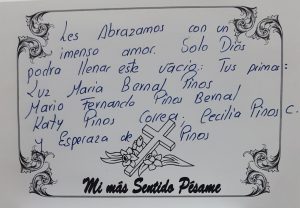 Les Abrazamos con un
imenso amor. Solo Diós
podra llenar este vacio: Tus primas:
Luz Maria Bernal Pinos
Mario Fernando Pinos Bernal
Katy Pinos Correa; Cecilia Pinos C.
y Esperaza de Pinos
Mi más Sentido Pésame